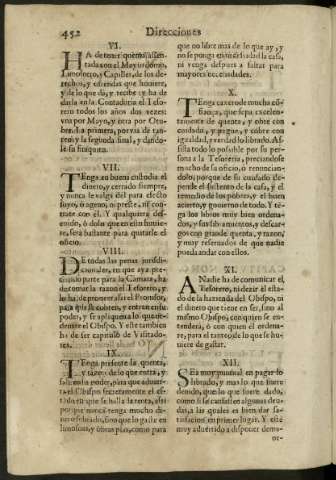 452
Direcciones
VI.
HA de tener quenta, assen-
tada con el Mayordomo,
Limosnero, y Capilla, de los de-
rechos, y ofrendas que huviere,
y de lo que dà, y recibe; y ha de
darla en la Contaduria el Teso-
rero todos los años dos vezes:
vna por Mayo, y otra por Otu-
bre. La primera, por via de tan-
teo, y la segunda final, y dando-
le su finiquito.
VII.
TEnga en buena custodia el
dinero, y cerrado siempre,
y nunca se valga del para efecto
suyo, ò ageno, ni preste, ni
trate con èl. Y qualquiera des-
cuido, ò dolo que en esto huvie-
se, serà bastante para quitarle el
oficio.
VIII.
DE todas las penas jurisdi-
cionales, en que aya pre-
parte para la Camara, ha
de tomar la razon el Tesorero, y
lo ha de
para que se cobren, y entren en su
poder, y se aplique a lo que or-
denare el Obispo. Y este tambien
ha de ser capitulo de Visitado-
res.
IX.
TEnga presente la quenta,
y razon de lo que entra, y
sale en su poder, para que advier-
ta el Obispo secretamente el es-
tado en que se halla la renta, assi
porque nunca tenga mucho di-
nero sobrado, sino que lo gaste en
limosnas, y obras pias, como para
que no libre mas de lo que ay, y
no se ponga en necessidad la casa,
ni venga despues a faltar para
mayores necessidades.
X.
TEnga caxero de mucha con-
fiança, que sepa excelen-
temente de quenta, y obre con
cuidado, y pague, y cobre con
igualdad, y verdad lo librado. As-
sista todo lo possible por su per-
sona a la Tesoreria, preciandose
mucho de su oficio, ò renuncian-
dolo; porque de su cuidado de-
pende el sustento de la casa, y el
remedio de los pobres, y el buen
acierto, y govierno de todo. Y ten-
ga los libros muy bien ordena-
dos, y sus libramientos, y descar-
gos con grande quenta, y razon,
y muy reservados de que nadie
pueda andar con ellos.
XI.
A Nadie ha de comunicar el
Tesorero, ni dezir el esta-
do de la hazienda del Obispo, ni
el dinero que tiene en ser, sino al
mismo Obispo, con quien se en-
tenderà, ò con quien el ordena-
re, para el tanteo, de lo que se hu-
viere de gastar.
XII.
SEa muy puntual en pagar lo
librado, y mas lo que fuere
devido, que lo que fuere dado,
como si se causassen algunas deu-
das, a las quales es bien dar sa-
tisfacion en primer lugar. Y estè
muy advertido a disponer demo-